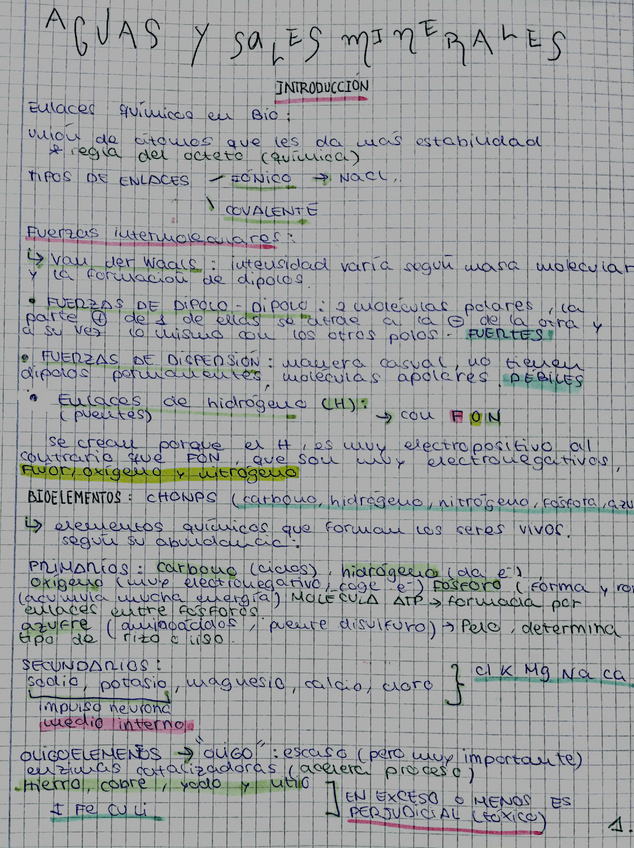 AGUAS Y SALES MINERALES
INTRODUCCIÓN
Enlaces químicos en Bio:
unión de átomos que les da más estabilidad
* regla del octeto (química)
TIPOS DE ENLACES - IÓNICO → NaCl.
\ COVALENTE
Fuerzas intermoleculares:
↳ Van der Waals: intensidad varía según masa molecular
y la formación de dipolos.
• FUERZAS DE DIPOLO-DIPOLO: 2 moléculas polares, la
parte ⊕ de 1 de ellas se atrae a la ⊖ de la otra y
a su vez lo mismo con los otros polos. FUERTES
• FUERZAS DE DISPERSIÓN: manera casual, no tienen
dipolos permanentes, moléculas apolares. DÉBILES
• Enlaces de hidrógeno (H):
(puentes) → con FON
se crean porque el H, es muy electropositivo al
contrario que FON, que son muy electronegativos,
Fluor, oxígeno y nitrógeno
BIOELEMENTOS: CHONPS (carbono, hidrógeno, nitrógeno, fósforo, azu
↳ elementos químicos que forman los seres vivos.
según su abundancia:
PRIMARIOS: carbono (ciclos), hidrógeno (da e⁻)
oxígeno (muy electronegativo, coge e⁻) Fósforo (forma y ro
(acumula mucha energía) MOLÉCULA ATP → formada por
enlaces entre fósforos
azufre (aminoácidos, puente disulfuro) → Pelo, determina
tipo de rizo o liso.
SECUNDARIOS:
sodio, potasio, magnesio, calcio, cloro } Cl K Mg Na Ca
impulso neurona
medio interno
OLIGOELEMENOS → "OLIGO": escaso (pero muy importante)
enzimas catalizadoras (acelera proceso)
Hierro, cobre, yodo y litio
I Fe Cu Li
] EN EXCESO O MENOS ES
PERJUDICIAL (TÓXICO)
1.